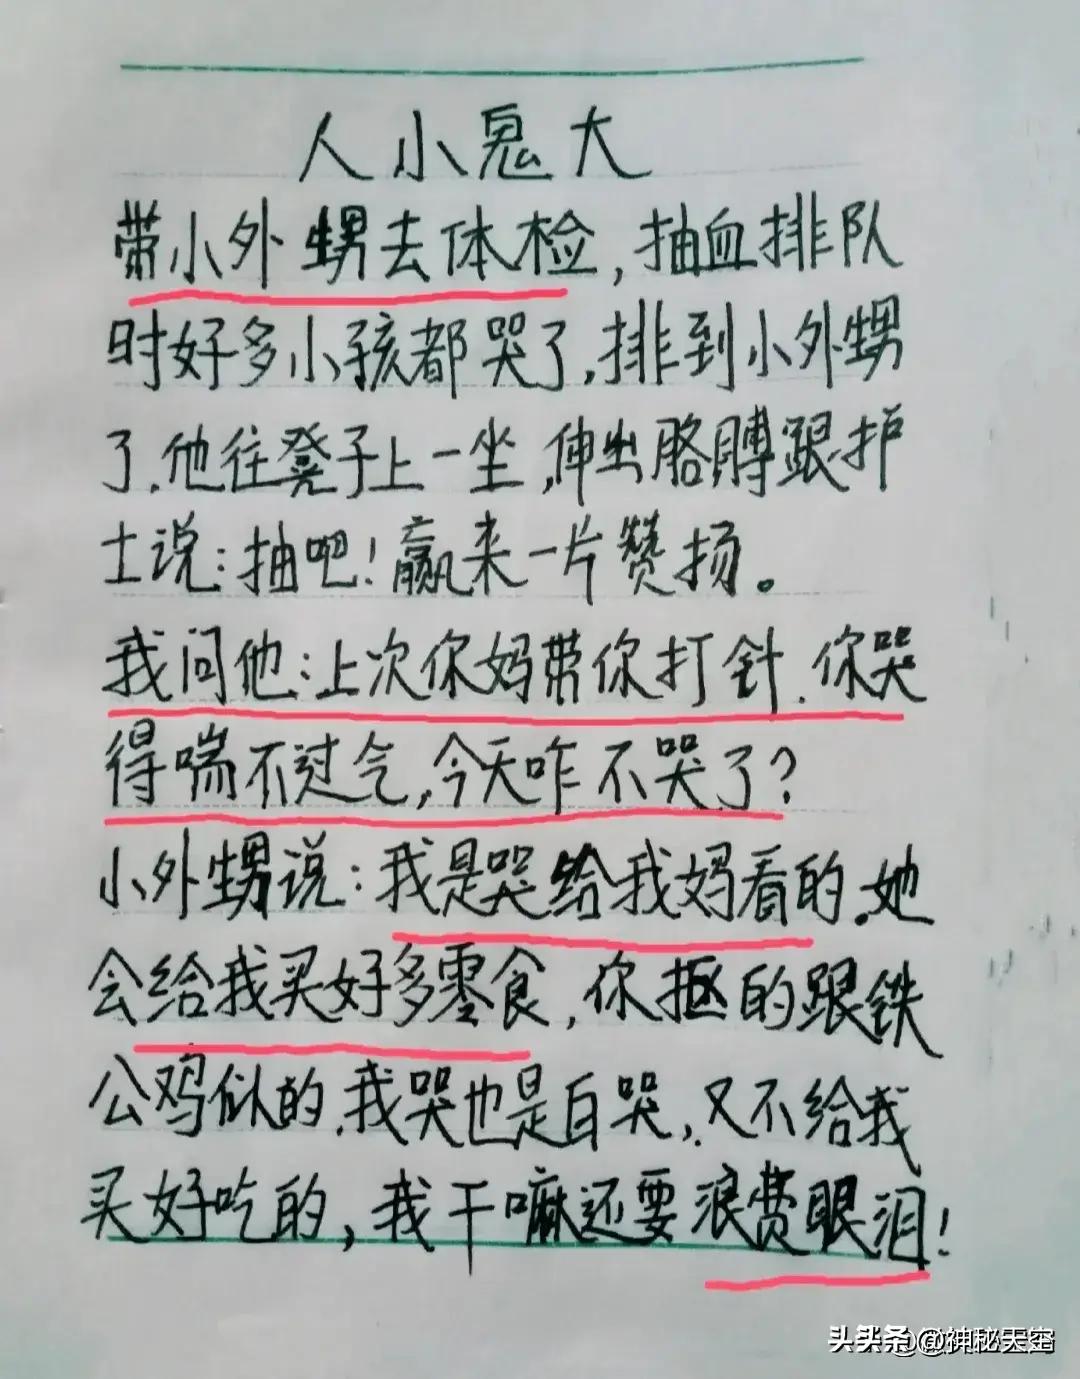 人小鬼大
带小外甥去体检,抽血排队
时好多小孩都哭了,排到小外甥
了.他往凳子上一坐,伸出胳膊跟护
士说:抽吧!赢来一片赞扬。
我问他:上次你妈带你打针.你哭
得喘不过气,今天咋不哭了?
小外甥说:我是哭给我妈看的.她
会给我买好多零食,你抠的跟铁
公鸡似的.我哭也是白哭,又不给我
买好吃的,我干嘛还要浪费眼泪!
头条@神秘天空